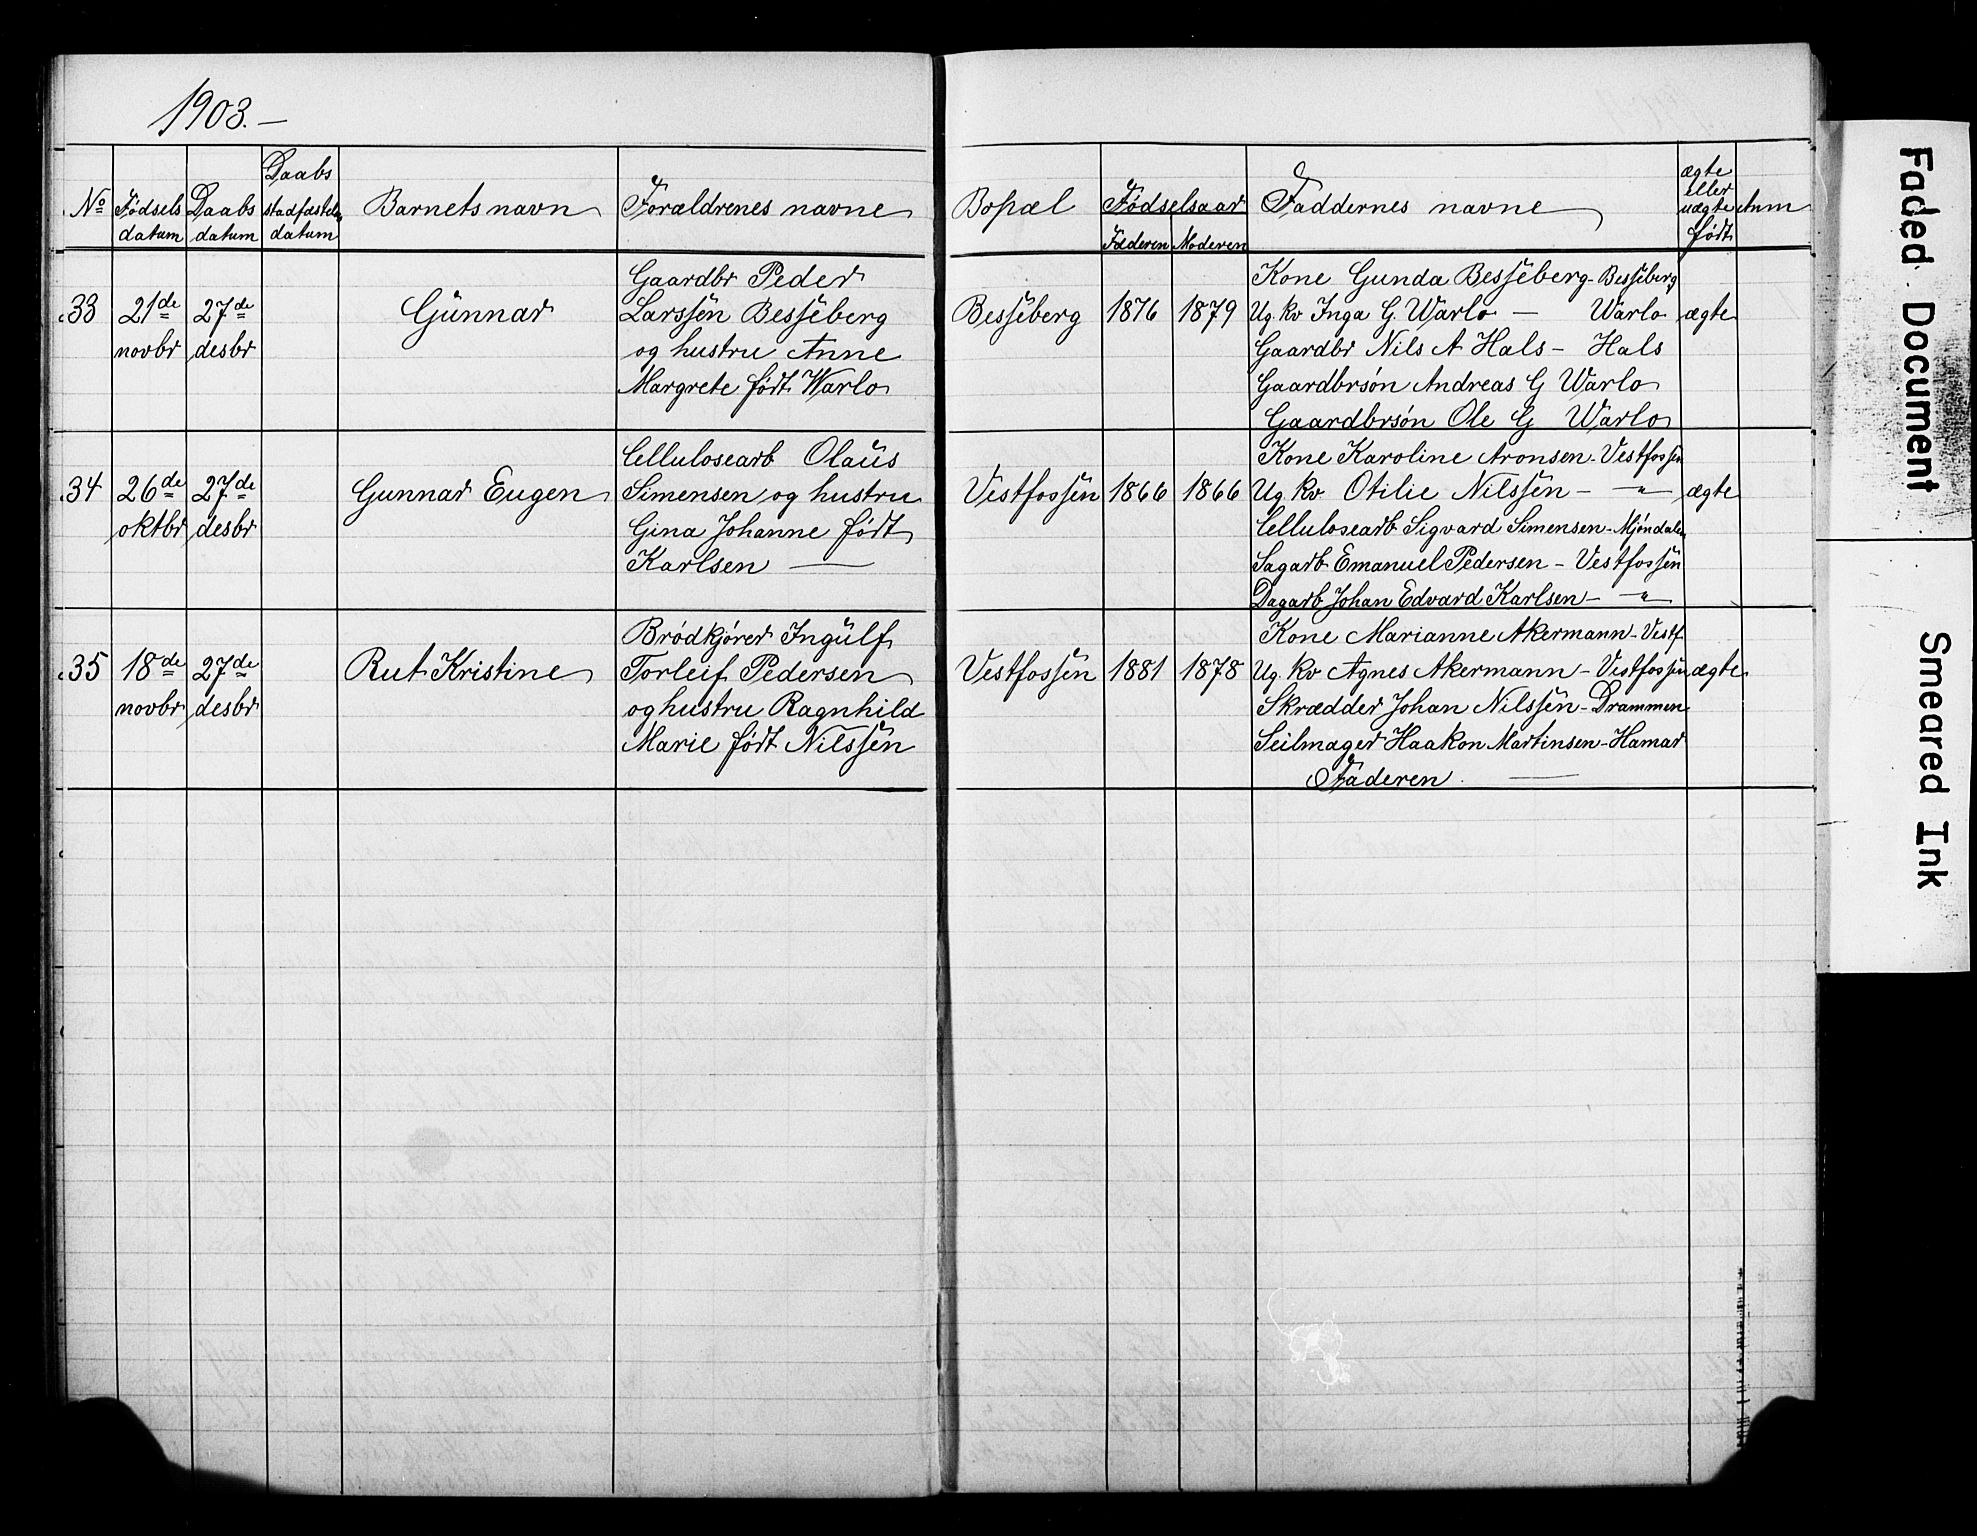 1903.—
No
Fødsels datum
Daabs datum
Daabs stadfæstelse datum
Barnets navn
Forældrenes navne
Bopæl
Fødselsaar
Faderen Moderen
Faddernes navne
ægte eller uægte født
Anm
33
21de novbr
27de desbr
Gunnar
Gaardbr Peder
Larssen Besseberg
og hustru Anne
Margrete født Warlo
Besseberg
1876
1879
Kone Gunda Besseberg - Besseberg
Ug. kv Inga G. Warlo — Warlo
Gaardbr Nils A Hals - Hals
Gaardbrsøn Andreas G Warlo
Gaardbrsøn Ole G Warlo
ægte
34
26de oktbr
27de desbr
Gunnar Eugen
Cellulosearb Olaus
Simensen og hustru
Gina Johanne født
Karlsen —
Vestfossen
1866
1866
Kone Karoline Aronsen - Vestfossen
Ug. kv. Otilie Nilssen - —"—
Cellulosearb Sigvard Simensen - Mjøndalen
Sagarb Emanuel Pedersen - Vestfossen
Dagarb Johan Edvard Karlsen - —"—
ægte
35
18de novbr
27de desbr
Rut Kristine
Brødkjører Ingulf
Torleif Pedersen
og hustru Ragnhild
Marie født Nilssen
Vestfossen
1881
1878
Kone Marianne Akermann - Vestf.
Ug. kv Agnes Akermann - Vestfossen
Skrædder Johan Nilssen - Drammen
Seilmager Haakon Martinsen - Hamar
Faderen. —
ægte
Faded Document
Smeared Ink